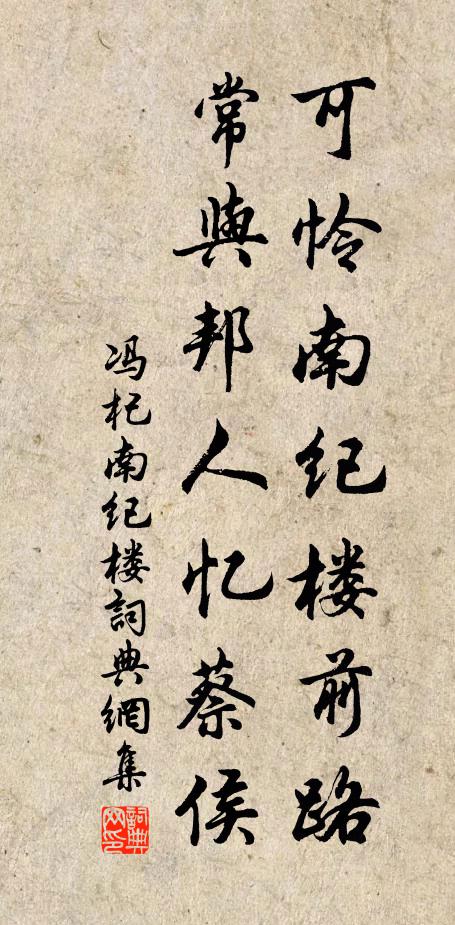 可怜南纪楼前路
常與邦人忆蔡侯
冯杞南纪楼詞典網集
詞典网印